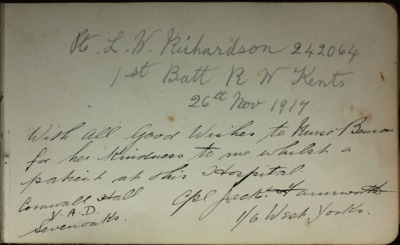 Pte. L. W. Richardson 242064
1st Batt R W Kents
26th Nov 1917
With All Good Wishes to Nurse Benson
for her kindness to me whilst a
patient at this Hospital.
Cornwall Hall Cpl Jack Farnworth
V.A.D. 1/6 West Yorks.
Sevenoaks.